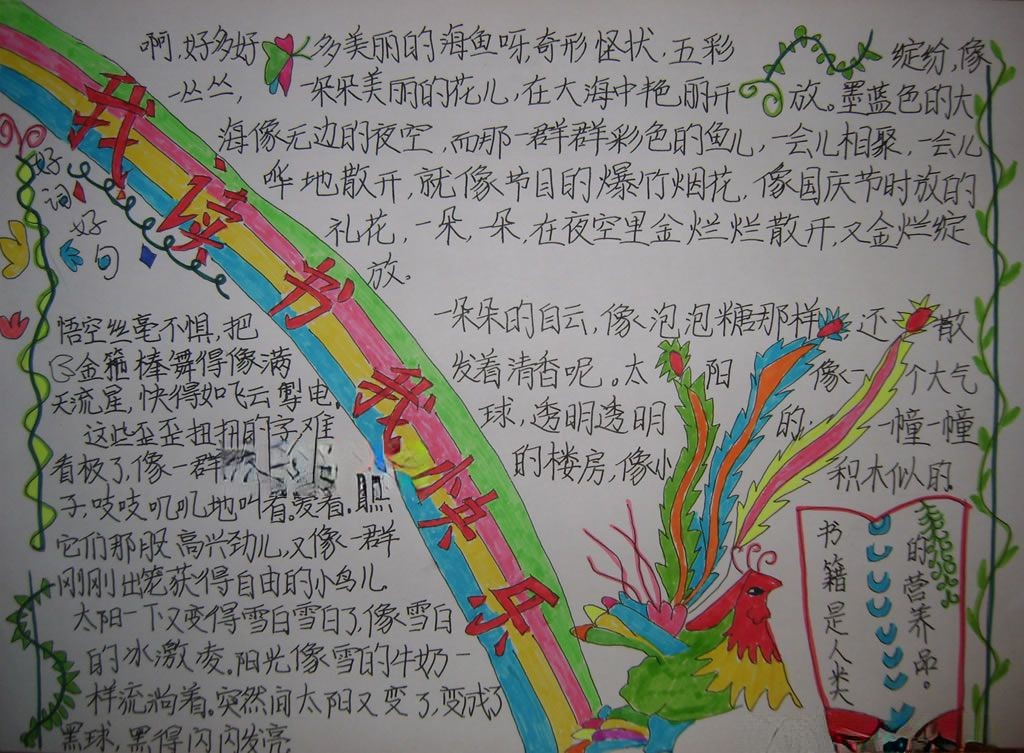 我读书我快乐
好词
好句
啊,好多好多美丽的海鱼呀,奇形怪状,五彩缤纷,像
一丛丛,一朵朵美丽的花儿,在大海中艳丽开放。墨蓝色的大
海像无边的夜空,而那一群群彩色的鱼儿,一会儿相聚,一会儿
哗地散开,就像节目的爆竹烟花,像国庆节时放的
礼花,一朵,一朵,在夜空里金烂烂散开,又金烂绽
放。
悟空丝毫不惧,把
金箍棒舞得像满
天流星,快得如飞云掣电。
这些歪歪扭扭的字难
看极了,像一群
子,吱吱叽叽地叫着。爱着。瞧
它们那股高兴劲儿,又像一群
刚刚出笼获得自由的小鸟儿
太阳一下又变得雪白雪白了,像雪白
的冰激凌。阳光像雪的牛奶一
样流淌着。突然间太阳又变了,变成了
黑球,黑得闪闪发亮
一朵朵的白云,像泡泡糖那样,还散
发着清香呢。太阳像一个大气
球,透明透明的。一幢一幢
的楼房,像小积木似的。
书籍是人类
的营养品。